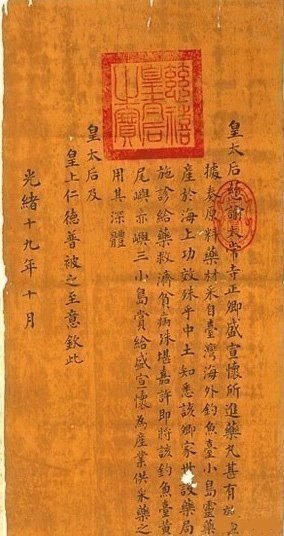 慈禧
皇太后
之寶
皇太后慈諭太常寺正卿盛宣懷所進藥丸甚有
據奏原料藥材采自臺灣海外釣魚臺小島靈藥
產於海上功效殊乎中土知悉該卿家世設藥局
施診給藥救濟貧病殊堪嘉許即將該釣魚臺黃
尾嶼赤嶼三小島賞給盛宣懷為產業供采藥之
用其深體
皇太后及
皇上仁德普被之至意欽此
光緒十九年十月